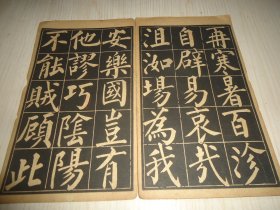 再寒暑百沴
自辟易哀哉
沮洳場為我
安樂國豈有
他謬巧隂陽
不能賊顧此